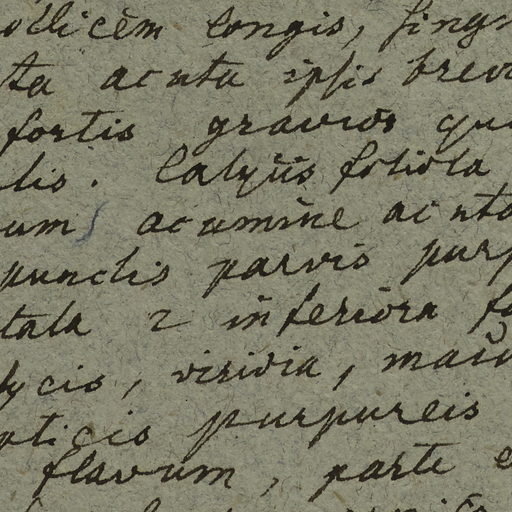 ollicem longis, sing
ta acuta ipsis brevi
fortis gravior qu
lis. Calycis foliola
um acumine acuto
punctis parvis purp
tala 2 inferiora fo
lycis, viridia, maiu
pticis purpureis
flavum, parte